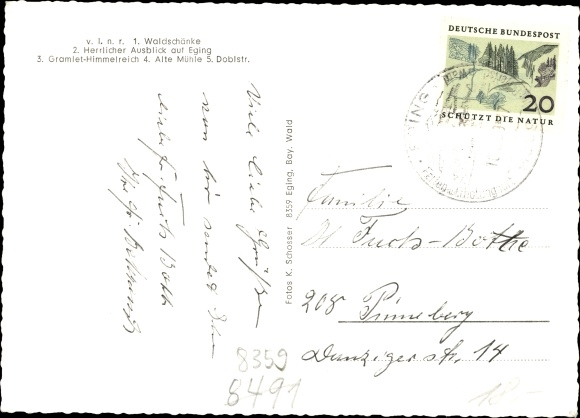 v. l. n. r. 1. Waldschänke
2. Herrlicher Ausblick auf Eging
3. Gramlet-Himmelreich 4. Alte Mühle 5. Doblstr.
Viele liebe Grüße
von hier sendet Ihnen
Fotos K. Schosser 8359 Eging, Bay. Wald
DEUTSCHE BUNDESPOST
20
SCHÜTZT DIE NATUR
EGING
Familie
Fuchs-Bothe
208 Pinneberg
Danzigerstr. 14
8359
8491